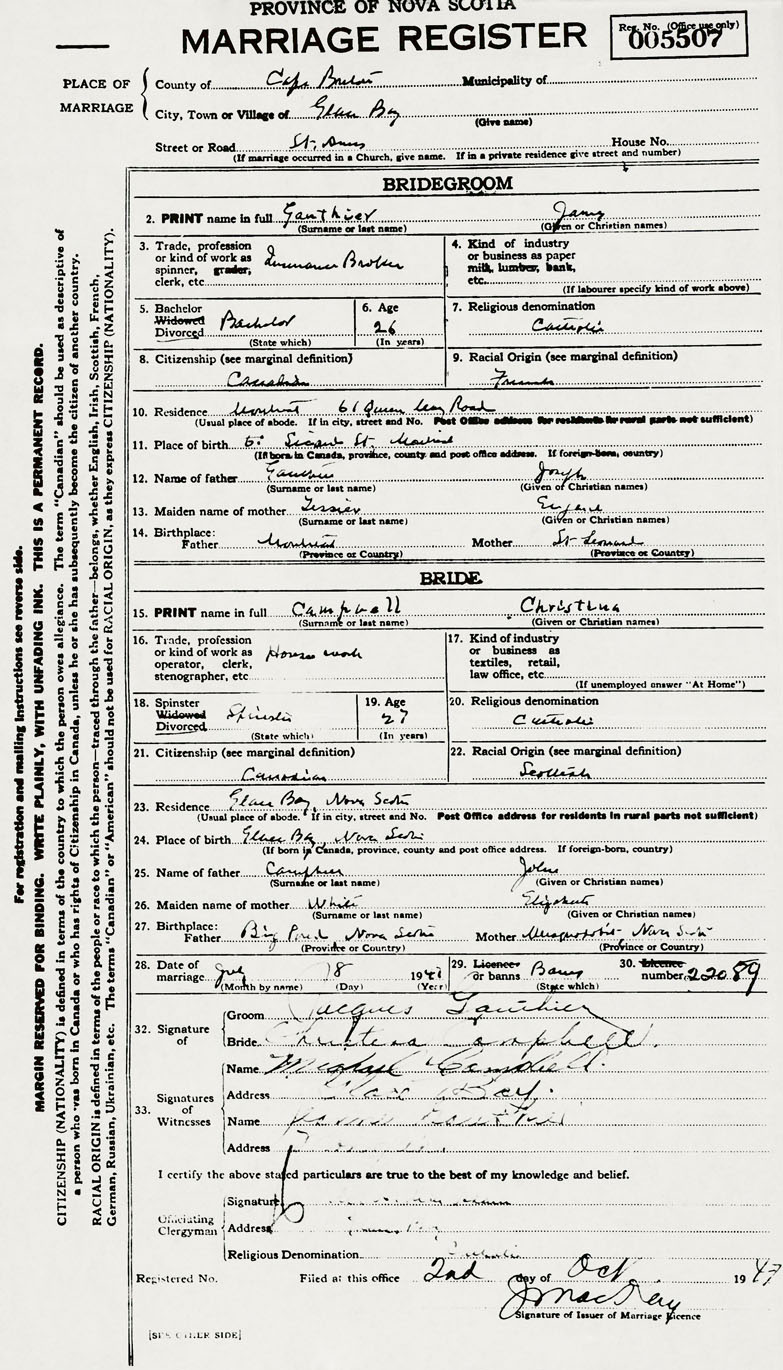 PROVINCE OF NOVA SCOTIA
MARRIAGE REGISTER
Reg. No. (Office use only)
005507
PLACE OF MARRIAGE
County of Cape Breton Municipality of
City, Town or Village of Glace Bay
(Give name)
Street or Road St. Anns House No.
(If marriage occurred in a Church, give name. If in a private residence give street and number)
BRIDEGROOM
2. PRINT name in full Gauthier
(Surname or last name) (Given or Christian names)
3. Trade, profession or kind of work as spinner, grader, clerk, etc. Insurance Broker
4. Kind of industry or business as paper milk, lumber, bank, etc.
(If labourer specify kind of work above)
5. Bachelor Widowed Divorced Bachelor
(State which)
6. Age 26
(In years)
7. Religious denomination Catholic
8. Citizenship (see marginal definition) Canadian
9. Racial Origin (see marginal definition) French
10. Residence Montreal 61 Queen Mary Road
(Usual place of abode. If in city, street and No. Post Office address for residents in rural parts not sufficient)
11. Place of birth St. Montreal
(If born in Canada, province, county and post office address. If foreign-born, country)
12. Name of father Gauthier Joseph
(Surname or last name) (Given or Christian names)
13. Maiden name of mother Tessier
(Surname or last name) (Given or Christian names)
14. Birthplace: Father Montreal Mother St Leonard
(Province or Country) (Province or Country)
BRIDE
15. PRINT name in full Campbell Christina
(Surname or last name) (Given or Christian names)
16. Trade, profession or kind of work as operator, clerk, stenographer, etc House work
17. Kind of industry or business as textiles, retail, law office, etc.
(If unemployed answer "At Home")
18. Spinster Widowed Divorced Spinster
(State which)
19. Age 27
(In years)
20. Religious denomination Catholic
21. Citizenship (see marginal definition) Canadian
22. Racial Origin (see marginal definition) Scottish
23. Residence Glace Bay, Nova Scotia
(Usual place of abode. If in city, street and No. Post Office address for residents in rural parts not sufficient)
24. Place of birth Glace Bay, Nova Scotia
(If born in Canada, province, county and post office address. If foreign-born, country)
25. Name of father Campbell John
(Surname or last name) (Given or Christian names)
26. Maiden name of mother White Elizabeth
(Surname or last name) (Given or Christian names)
27. Birthplace: Father Big Pond Nova Scotia Mother Musquodoboit Nova Scotia
(Province or Country) (Province or Country)
28. Date of marriage 1947
(Month by name) (Day) (Year)
29. Licence or banns Banns
(State which)
30. Licence number 22089
32. Signature of
Groom Jacques Gauthier
Bride Christena Campbell.
33. Signatures of Witnesses
Name Michael Campbell.
Address Glace Bay.
Name
Address
I certify the above stated particulars are true to the best of my knowledge and belief.
Officiating Clergyman
Signature
Address
Religious Denomination Catholic
Registered No. Filed at this office 2nd day of Oct 1947
Signature of Issuer of Marriage Licence
[SEE OTHER SIDE]
For registration and mailing instructions see reverse side.
MARGIN RESERVED FOR BINDING. WRITE PLAINLY, WITH UNFADING INK. THIS IS A PERMANENT RECORD.
CITIZENSHIP (NATIONALITY) is defined in terms of the country to which the person owes allegiance. The term "Canadian" should be used as descriptive of
a person who was born in Canada or who has rights of Citizenship in Canada, unless he or she has subsequently become the citizen of another country.
RACIAL ORIGIN is defined in terms of the people or race to which the person—traced through the father—belongs, whether English, Irish, Scottish, French,
German, Russian, Ukrainian, etc. The terms "Canadian" or "American" should not be used for RACIAL ORIGIN, as they express CITIZENSHIP (NATIONALITY).